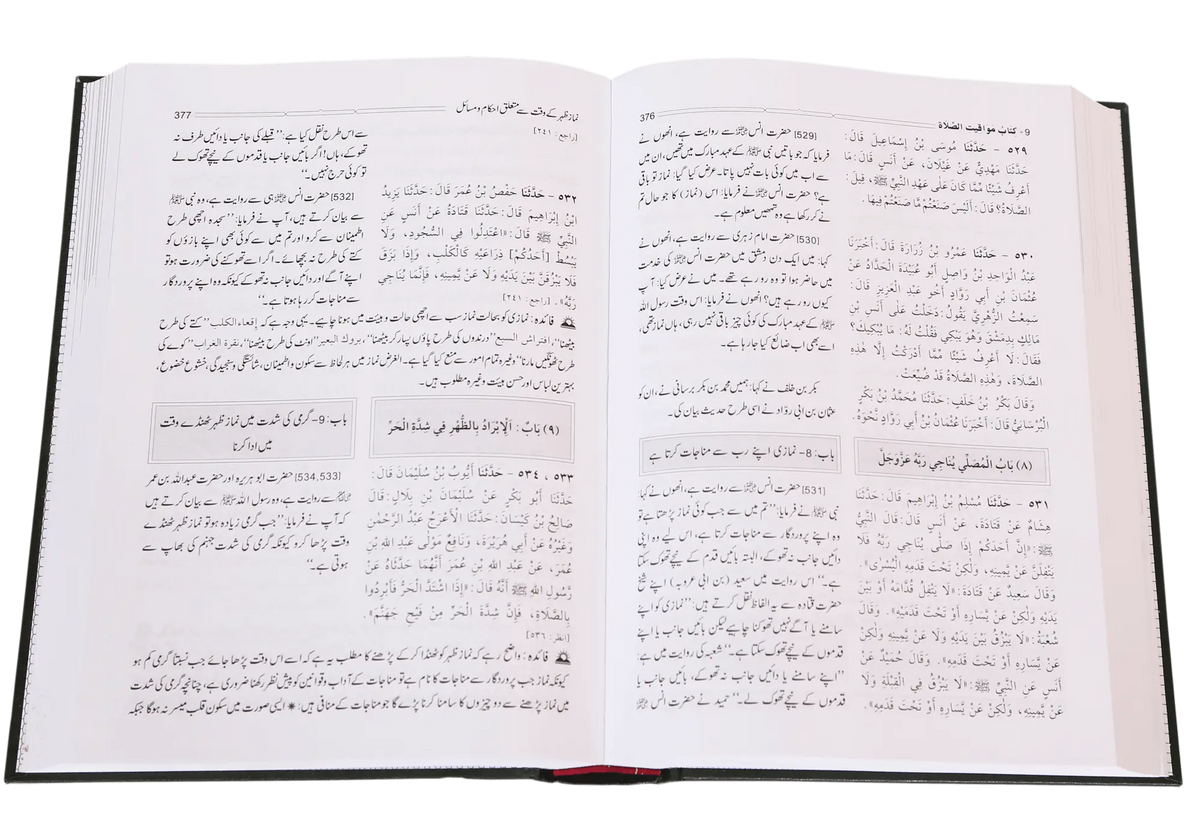 9- كتاب مواقيت الصلاة
376
٥٢٩ - حَدَّثَنَا مُوسَى بْنُ إِسْمَاعِيلَ قَالَ:
حَدَّثَنَا مَهْدِيٌّ عَنْ غَيْلَانَ، عَنْ أَنَسٍ قَالَ: مَا
أَعْرِفُ شَيْئًا مِّمَّا كَانَ عَلَى عَهْدِ النَّبِيِّ ﷺ، قِيلَ:
الصَّلَاةُ؟ قَالَ: أَلَيْسَ صَنَعْتُمْ مَّا صَنَعْتُمْ فِيهَا.
٥٣٠ - حَدَّثَنَا عَمْرُو بْنُ زُرَارَةَ قَالَ: أَخْبَرَنَا
عَبْدُ الْوَاحِدِ بْنُ وَاصِلٍ أَبُو عُبَيْدَةَ الْحَدَّادُ عَنْ
عُثْمَانَ بْنِ أَبِي رَوَّادٍ أَخُو عَبْدِ الْعَزِيزِ قَالَ:
سَمِعْتُ الزُّهْرِيَّ يَقُولُ: دَخَلْتُ عَلَى أَنَسِ بْنِ
مَالِكٍ بِدِمَشْقَ وَهُوَ يَبْكِي فَقُلْتُ لَهُ: مَا يُبْكِيكَ؟
فَقَالَ: لَا أَعْرِفُ شَيْئًا مِّمَّا أَدْرَكْتُ إِلَّا هَذِهِ
الصَّلَاةَ، وَهٰذِهِ الصَّلَاةُ قَدْ ضُيِّعَتْ.
وَقَالَ بَكْرُ بْنُ خَلَفٍ: حَدَّثَنَا مُحَمَّدُ بْنُ بَكْرٍ
الْبُرْسَانِيُّ قَالَ: أَخْبَرَنَا عُثْمَانُ بْنُ أَبِي رَوَّادٍ نَّحْوَهُ.
(٨) بَابُ الْمُصَلِّي يُنَاجِي رَبَّهُ عَزَّوَجَلَّ
٥٣١ - حَدَّثَنَا مُسْلِمُ بْنُ إِبْرَاهِيمَ قَالَ: حَدَّثَنَا
هِشَامٌ عَنْ قَتَادَةَ، عَنْ أَنَسٍ قَالَ: قَالَ النَّبِيُّ
ﷺ: «إِنَّ أَحَدَكُمْ إِذَا صَلَّى يُنَاجِي رَبَّهُ فَلَا
يَتْفِلَنَّ عَنْ يَّمِينِهِ، وَلَكِنْ تَحْتَ قَدَمِهِ الْيُسْرَى».
وَقَالَ سَعِيدٌ عَنْ قَتَادَةَ: «لَا يَتْفِلُ قُدَّامَهُ أَوْ بَيْنَ
يَدَيْهِ وَلَكِنْ عَنْ يَّسَارِهِ أَوْ تَحْتَ قَدَمَيْهِ». وَقَالَ
شُعْبَةُ: «لَا يَبْزُقُ بَيْنَ يَدَيْهِ وَلَا عَنْ يَّمِينِهِ وَلَكِنْ
عَنْ يَّسَارِهِ أَوْ تَحْتَ قَدَمِهِ». وَقَالَ حُمَيْدٌ عَنْ
أَنَسٍ عَنِ النَّبِيِّ ﷺ: «لَا يَبْزُقْ فِي الْقِبْلَةِ وَلَا
عَنْ يَّمِينِهِ، وَلَكِنْ عَنْ يَّسَارِهِ أَوْ تَحْتَ قَدَمِهِ».
[529] حضرت انس ؓ سے روایت ہے، انھوں نے
فرمایا کہ جو باتیں نبی ﷺ کے عہد مبارک میں تھیں، ان میں
سے اب میں کوئی بات نہیں پاتا۔ عرض کیا گیا: نماز تو باقی
ہے؟ حضرت انس ؓ نے فرمایا: اس (نماز) کا جو حال تم
نے کر رکھا ہے وہ تمھیں معلوم ہے۔
[530] حضرت امام زہری سے روایت ہے، انھوں نے
کہا: میں ایک دن دمشق میں حضرت انس ؓ کی خدمت
میں حاضر ہوا تو وہ رو رہے تھے۔ میں نے عرض کیا: آپ
کیوں رو رہے ہیں؟ انھوں نے فرمایا: اس وقت رسول اللہ
ﷺ کے عہد مبارک کی کوئی چیز باقی نہیں رہی، ہاں نماز تھی،
اسے بھی اب ضائع کیا جا رہا ہے۔
بکر بن خلف نے کہا: ہمیں محمد بن بکر برسانی نے، ان کو
عثمان بن ابی روّاد نے اسی طرح حدیث بیان کی۔
باب: 8- نمازی اپنے رب سے مناجات کرتا ہے
[531] حضرت انس ؓ سے روایت ہے، انھوں نے کہا:
نبی ﷺ نے فرمایا: ’’تم میں سے جب کوئی نماز پڑھتا ہے تو
وہ اپنے پروردگار سے مناجات کرتا ہے، اس لیے وہ اپنی
دائیں جانب نہ تھوکے، البتہ بائیں قدم کے نیچے تھوک سکتا
ہے۔‘‘ اس روایت میں سعید (بن ابی عروبہ) اپنے شیخ
حضرت قتادہ سے یہ الفاظ نقل کرتے ہیں: ’’نمازی کو اپنے
سامنے یا آگے نہیں تھوکنا چاہیے لیکن بائیں جانب یا اپنے
قدموں کے نیچے تھوک سکتا ہے۔‘‘ شعبہ کی روایت میں ہے:
’’اپنے سامنے یا دائیں جانب نہ تھوکے، بائیں جانب یا
قدموں کے نیچے تھوک لے۔‘‘ حمید نے حضرت انس ؓ
نماز ظہر کے وقت سے متعلق احکام و مسائل
377
[راجع: ٢٤١]
٥٣٢ - حَدَّثَنَا حَفْصُ بْنُ عُمَرَ قَالَ: حَدَّثَنَا يَزِيدُ
ابْنُ إِبْرَاهِيمَ قَالَ: حَدَّثَنَا قَتَادَةُ عَنْ أَنَسٍ عَنِ
النَّبِيِّ ﷺ قَالَ: «اعْتَدِلُوا فِي السُّجُودِ، وَلَا
يَبْسُطْ [أَحَدُكُمْ] ذِرَاعَيْهِ كَالْكَلْبِ، وَإِذَا بَزَقَ
فَلَا يَبْزُقَنَّ بَيْنَ يَدَيْهِ وَلَا عَنْ يَّمِينِهِ، فَإِنَّمَا يُنَاجِي
رَبَّهُ». [راجع: ٢٤١]
سے اس طرح نقل کیا ہے: ’’قبلے کی جانب یا دائیں طرف نہ
تھوکے، ہاں! اگر بائیں جانب یا قدموں کے نیچے تھوک لے
تو کوئی حرج نہیں۔‘‘
[532] حضرت انس ؓ ہی سے روایت ہے، وہ نبی ﷺ
سے بیان کرتے ہیں، آپ نے فرمایا: ’’سجدہ اچھی طرح
اطمینان سے کرو اور تم میں سے کوئی بھی اپنے بازوؤں کو
کتے کی طرح نہ بچھائے۔ اگر اسے تھوکنے کی ضرورت ہو تو
اپنے آگے اور دائیں جانب نہ تھوکے کیونکہ وہ اپنے پروردگار
سے مناجات کر رہا ہوتا ہے۔‘‘
فائدہ: نمازی کو بحالت نماز سب سے اچھی حالت و ہیئت میں ہونا چاہیے۔ یہی وجہ ہے کہ إقعاء الكلب ’’کتے کی طرح
بیٹھنا‘‘، افتراش السبع ’’درندوں کی طرح پاؤں پسار کر بیٹھنا‘‘، بروك البعير ’’اونٹ کی طرح بیٹھنا‘‘، نقرة الغراب ’’کوے کی
طرح ٹھونگیں مارنا‘‘ وغیرہ تمام امور سے منع کیا گیا ہے۔ الغرض نماز میں ہر لحاظ سے سکون و اطمینان، شائستگی و سنجیدگی، خشوع خضوع،
بہترین لباس اور حسن ہیئت وغیرہ مطلوب ہیں۔
(٩) بَابُ: اَلْإِبْرَادِ بِالظُّهْرِ فِي شِدَّةِ الْحَرِّ
باب: 9- گرمی کی شدت میں نماز ظہر ٹھنڈے وقت
میں ادا کرنا
٥٣٣ ، ٥٣٤ - حَدَّثَنَا أَيُّوبُ بْنُ سُلَيْمَانَ قَالَ:
حَدَّثَنَا أَبُو بَكْرٍ عَنْ سُلَيْمَانَ بْنِ بِلَالٍ: قَالَ
صَالِحُ بْنُ كَيْسَانَ: حَدَّثَنَا الْأَعْرَجُ عَبْدُ الرَّحْمٰنِ
وَغَيْرُهُ عَنْ أَبِي هُرَيْرَةَ، وَنَافِعٌ مَوْلَى عَبْدِ اللهِ بْنِ
عُمَرَ، عَنْ عَبْدِ اللهِ بْنِ عُمَرَ أَنَّهُمَا حَدَّثَاهُ عَنْ
رَّسُولِ اللهِ ﷺ أَنَّهُ قَالَ: «إِذَا اشْتَدَّ الْحَرُّ فَأَبْرِدُوا
بِالصَّلَاةِ، فَإِنَّ شِدَّةَ الْحَرِّ مِنْ فَيْحِ جَهَنَّمَ».
[انظر: ٥٣٦]
[534,533] حضرت ابو ہریرہ اور حضرت عبداللہ بن عمر
ؓ سے روایت ہے، وہ رسول اللہ ﷺ سے بیان کرتے ہیں
کہ آپ نے فرمایا: ’’جب گرمی زیادہ ہو تو نماز ظہر ٹھنڈے
وقت پڑھا کرو کیونکہ گرمی کی شدت جہنم کی بھاپ سے
ہوتی ہے۔‘‘
فائدہ: واضح رہے کہ نماز ظہر کو ٹھنڈا کر کے پڑھنے کا مطلب یہ ہے کہ اسے اس وقت پڑھا جائے جب نسبتاً گرمی کم ہو
کیونکہ نماز جب پروردگار سے مناجات کا نام ہے تو مناجات کے آداب و قوانین کو پیش نظر رکھنا ضروری ہے، چنانچہ گرمی کی شدت
میں نماز پڑھنے سے دو چیزوں کا سامنا کرنا پڑے گا جو مناجات کے منافی ہیں: ✷ ایسی صورت میں سکون قلب میسر نہ ہوگا جبکہ